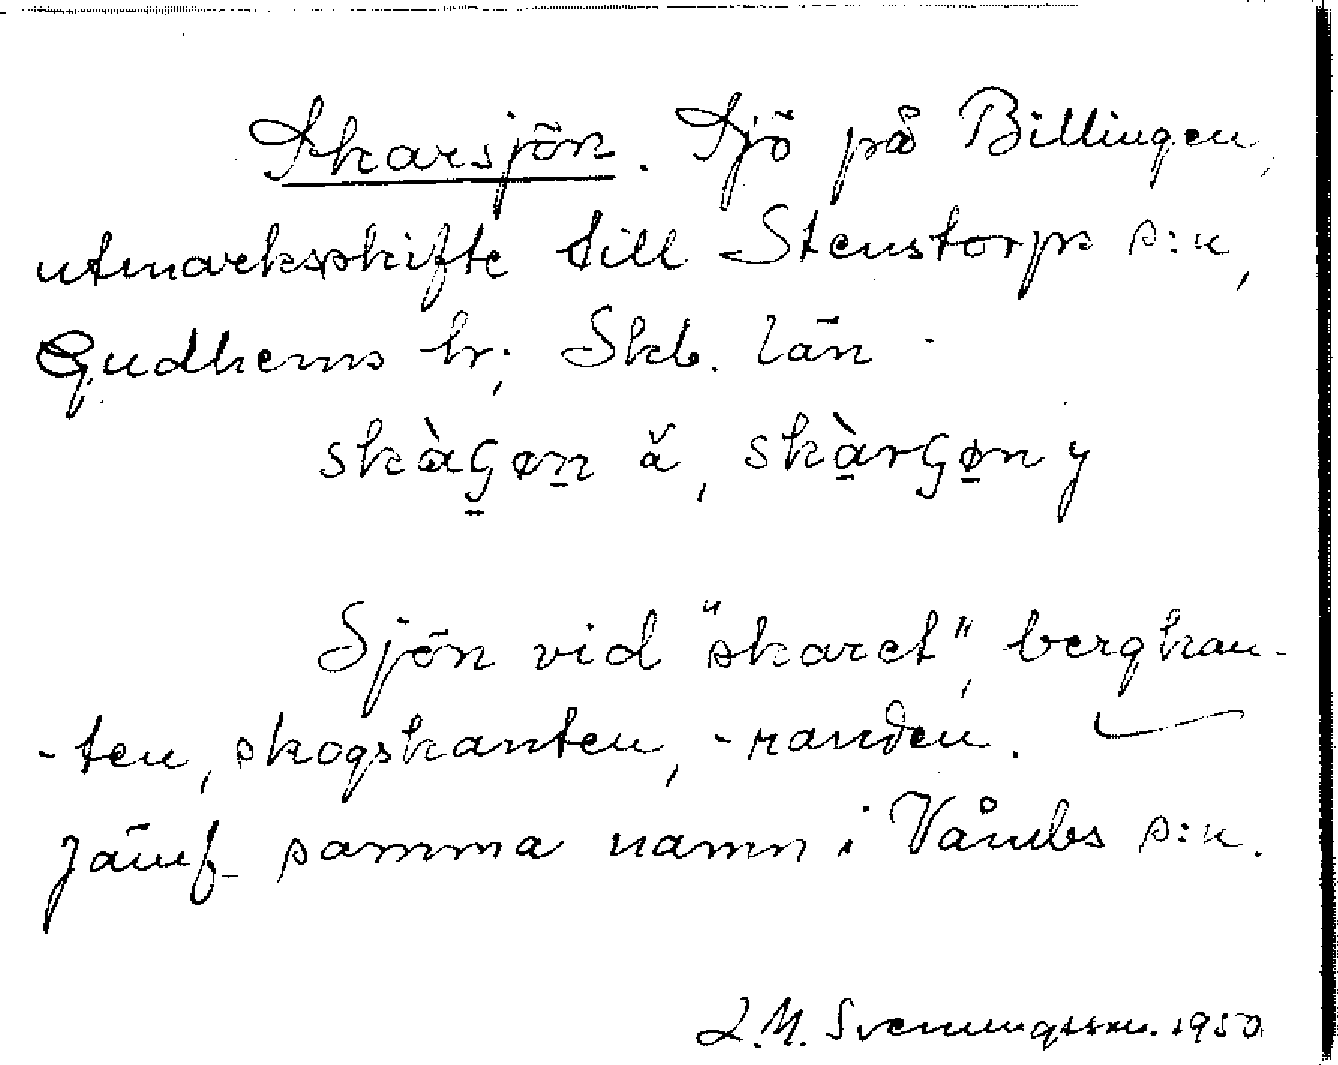 Skarsjön. Sjö på Billingen,
utmarksskifte till Stenstorps s:n,
Gudhems hr; Skb. län
skàGøn ä, skàrGøn y
Sjön vid "skaret", bergkan-
-ten, skogskanten, -randen.
Jämf. samma namn i Våmbs s:n.
L.M. Svenungsson. 1950